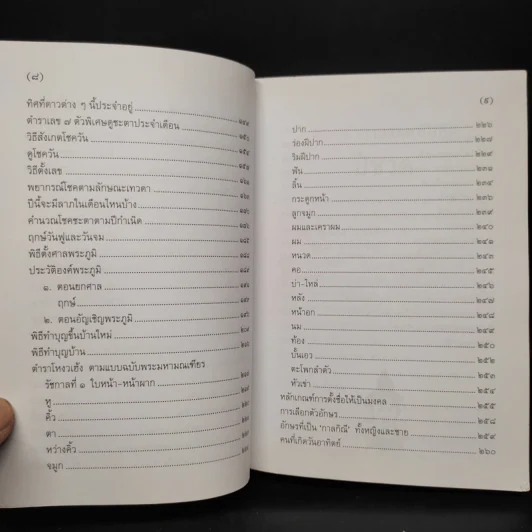 (๘)
ทิศที่ดาวต่าง ๆ นี้ประจำอยู่
ตำราเลข ๗ ตัวพิเศษดูชะตาประจำเดือน
วิธีสังเกตโชควัน
ดูโชควัน
วิธีตั้งเลข
พยากรณ์โชคตามลักษณะเทวดา
ปีนี้จะมีลาภในเดือนไหนบ้าง
คำนวณโชคชะตาตามปีกำเนิด
ฤกษ์วันฟูและวันจม
พิธีตั้งศาลพระภูมิ
ประวัติองค์พระภูมิ
๑. ตอนยกศาล
ฤกษ์
๒. ตอนอัญเชิญพระภูมิ
พิธีทำบุญขึ้นบ้านใหม่
พิธีทำบุญบ้าน
ตำราโหงวเฮ้ง ตามแบบฉบับพระมหามณเฑียร
รัชกาลที่ ๑ ใบหน้า-หน้าผาก
หู
คิ้ว
ตา
หว่างคิ้ว
จมูก
(๙)
ปาก ๒๒๖
ร่องฝีปาก ๒๒๗
ริมฝีปาก ๒๒๙
ฟัน ๒๓๑
ลิ้น ๒๓๔
กระดูกหน้า ๒๓๖
ลูกจมูก ๒๓๙
ผมและเคราผม ๒๔๐
ผม ๒๔๑
หนวด ๒๔๓
คอ ๒๔๕
บ่า-ไหล่ ๒๔๖
หลัง ๒๔๗
หน้าอก ๒๔๘
นม ๒๔๙
ท้อง ๒๕๐
บั้นเอว ๒๕๒
ตะโพกลำตัว ๒๕๓
หัวเข่า ๒๕๔
หลักเกณฑ์การตั้งชื่อให้เป็นมงคล ๒๕๕
การเลือกตัวอักษร ๒๕๘
อักษรที่เป็น 'กาลกิณี' ทั้งหญิงและชาย ๒๕๙
คนที่เกิดวันอาทิตย์ ๒๖๐